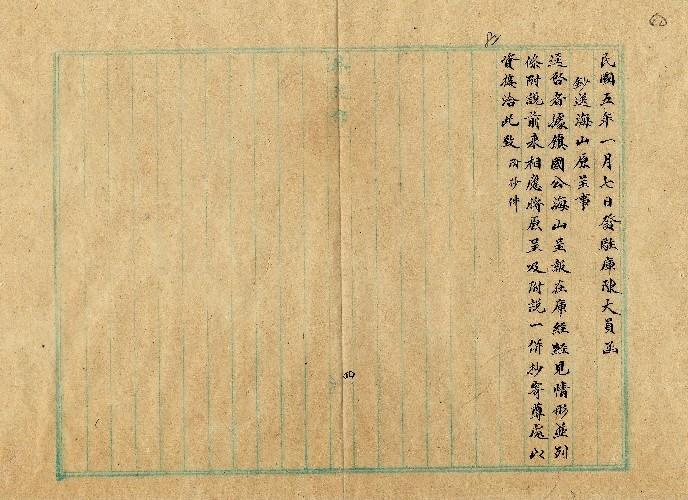 民國五年一月七日發駐庫陳大員函
鈔送海山原呈事
逕啓者據鎮國公海山呈報在庫經經見情形並列
條附說前來相應將原呈及附說一併抄寄尊處以
資接洽此致 附抄件